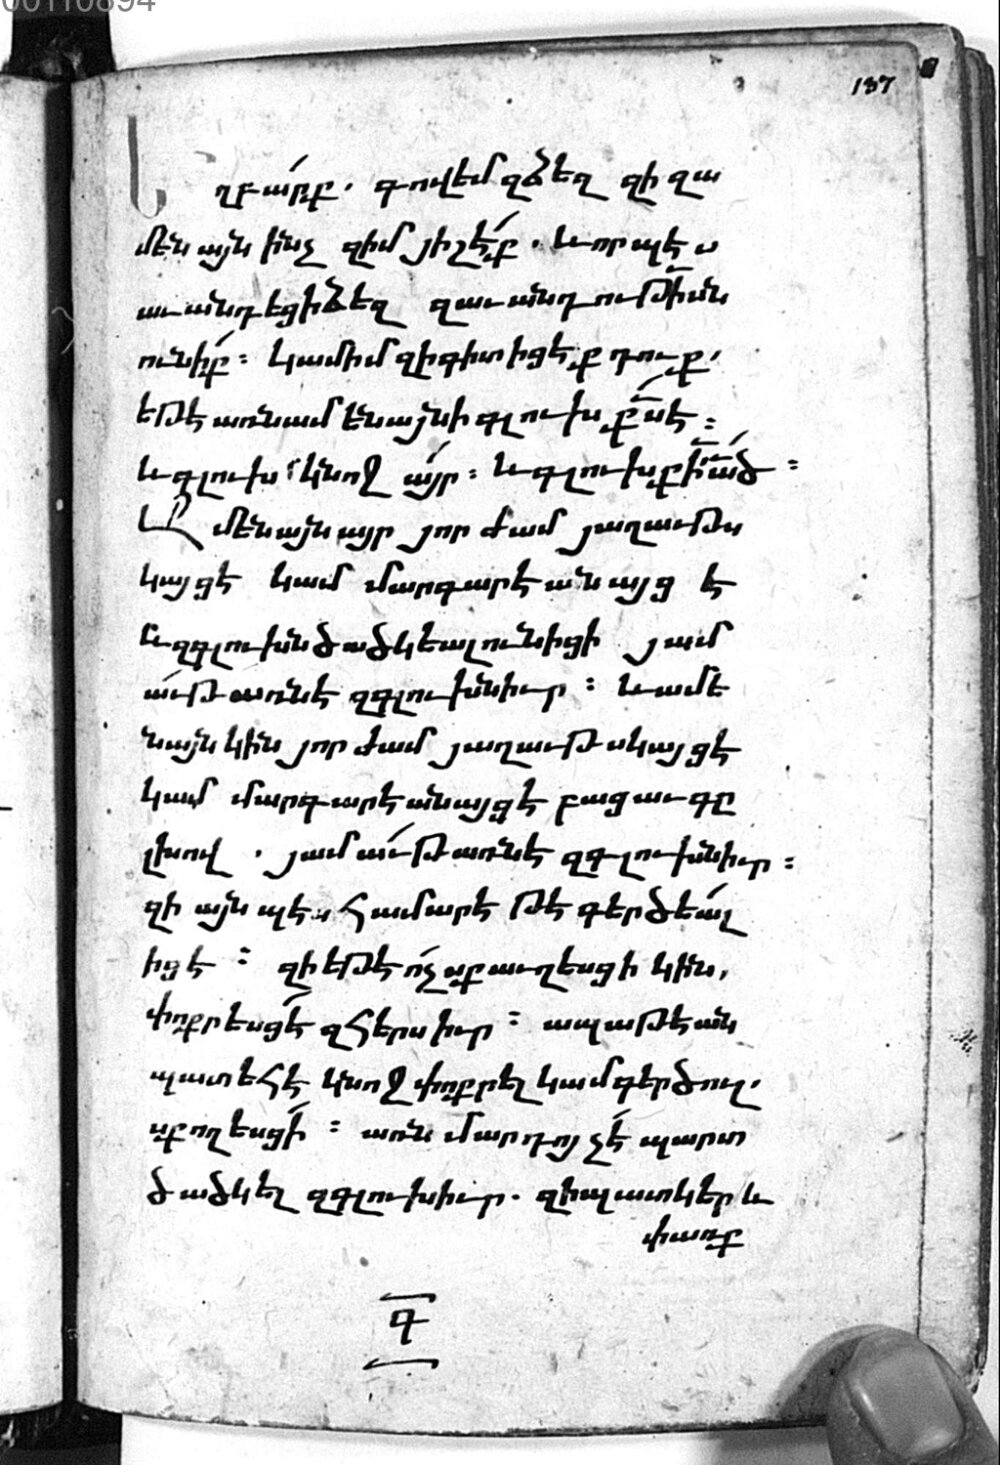 00110894
187
Եղբա՛րք. գովեմ զձեզ զի զա
մենայն ինչ զիմ յիշէ՛ք. և որպէս
աւանդեցի ձեզ զաւանդութիւն
ունի՛ք։ կամիմ զի գիտիցէք դուք,
եթէ առն ամենայնի գլուխ քս է։
և գլուխ կնոջ այր։ և գլուխ քի ած։
Ամենայն այր յորժամ յաղաւթս
կայցէ կամ մարգարէանայցէ
և զգլուխն ծածկեալ ունիցի յամ
աւթ առնէ զգլուխն իւր։ և ամե
նայն կին յորժամ յաղաւթս կայցէ
կամ մարգարէանայցէ բացաւ գը
լխով. յամաւթ առնէ զգլուխն իւր։
զի այնպէս համարէ թէ գերծեալ
իցէ։ զի եթէ ոչ սքաւղեսցի կին,
փոքրեսցէ զհերս իւր։ ապա թէ ան
պատեհ է կնոջ փոքրել կամ գերծուլ.
սքողեսցի՛։ առն մարդոյ չէ պարտ
ծածկել զգլուխ իւր. զի պատկեր և
փառք
Գ